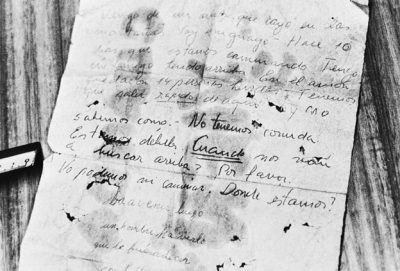 Vengo de un avión que cayó en las
montañas. Soy uruguayo. Hace 10
días que estamos caminando. Tengo
un amigo herido arriba. En el avión
quedan 14 personas heridas. Tenemos
que salir rápido de aquí y no
sabemos como. No tenemos comida
Estamos débiles. Cuando nos van
a buscar arriba? Por favor.
No podemos ni caminar. Donde estamos?